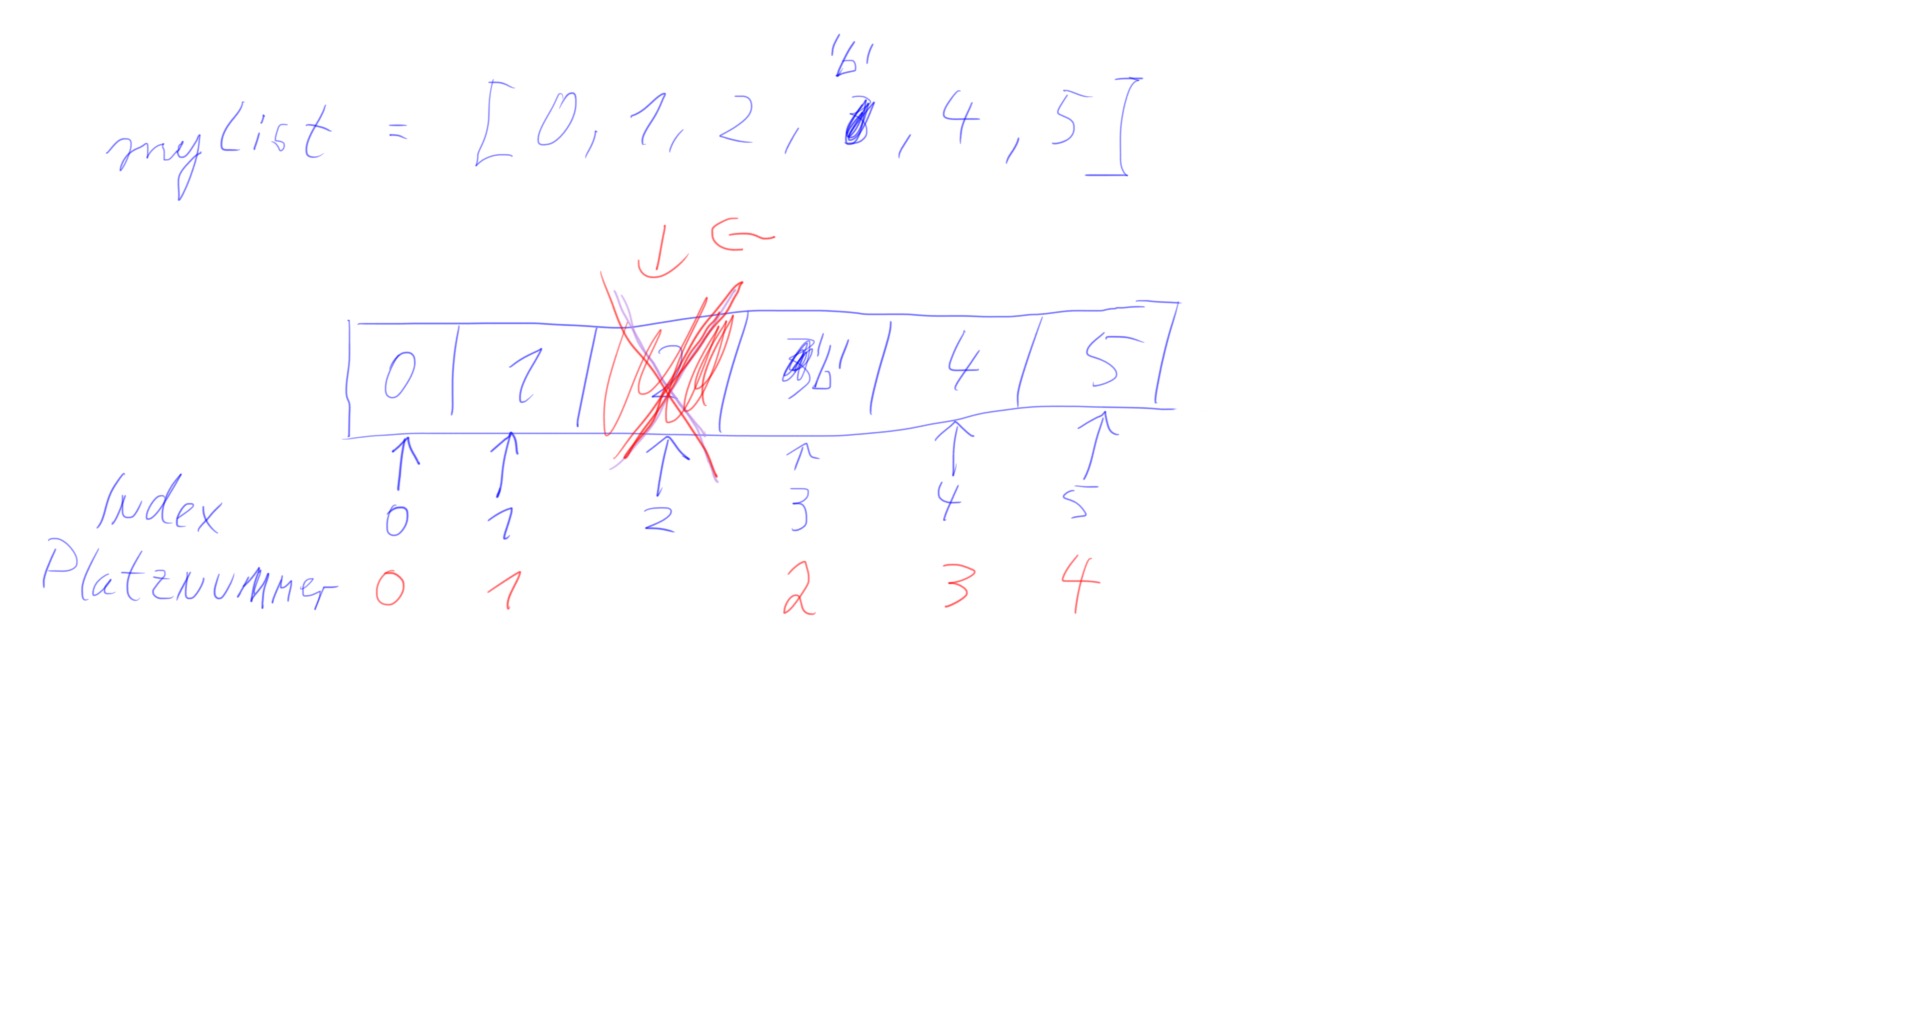 'b'
myList = [0, 1, 2, , 4, 5]
0 1 2 'b' 4 5
Index 0 1 2 3 4 5
Platznummer 0 1 2 3 4